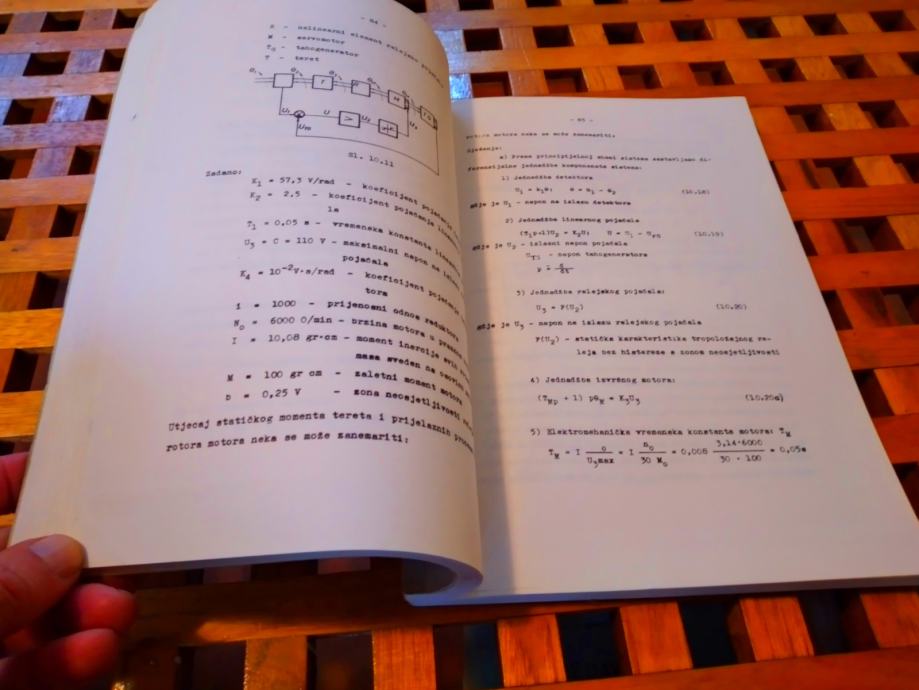 - 84 -
- nelinearni element relejsko pojačalo
M - servomotor
TG - tahogenerator
T - teret
U₁
U
U₂
U₃
U_TG
Sl. 10.11
Zadano:
K₁ = 57,3 V/rad - koeficijent pojačanja
K₂ = 2.5 - koeficijent pojačanja
la
T₁ = 0,05 s - vremenska konstanta
U₃ = C = 110 V - maksimalni napon na
pojačala
K₄ = 10⁻²V·s/rad - koeficijent
tora
i = 1000 - prijenosni odnos reduktora
N₀ = 6000 O/min - brzina motora u
I = 10,08 gr·cm - moment inercije svih
masa sveden na osovinu
M = 100 gr cm - zaletni moment motora
b = 0,25 V - zona neosjetljivosti
Utjecaj statičkog momenta tereta i prijelaznih
rotora motora neka se može zanemariti:
- 85 -
motora neka se može zanemariti.
Rješenje:
a) Prema principijelnoj shemi sistema sastavljamo di-
ferencijalne jednadžbe komponenata sistema:
1) Jednadžba detektora
U₁ = k₁θ; θ = θ₁ - θ₂ (10.18)
gdje je U₁ - napon na izlazu detektora
2) Jednadžba linearnog pojačala
(T₁p+1)U₂ = K₂U; U = U₁ - U_TG (10.19)
gdje je U₂ - izlazni napon pojačala
U_TG - napon tahogeneratora
p = d/dt
3) Jednadžba relejskog pojačala:
U₃ = F(U₂) (10.20)
gdje je U₃ - napon na izlazu relejskog pojačala
F(U₂) - statička karakteristika tropoložajnog re-
leja bez histereze s zonom neosjetljivosti
4) Jednadžba izvršnog motora:
(T_Mp + 1) pθ_M = K₃U₃ (10.20a)
5) Elektromehanička vremenska konstanta motora: T_M
T_M = I o/U₃max = I n₀/30 M₀ = 0,008 3,14·6000/30 · 100 = 0,05s